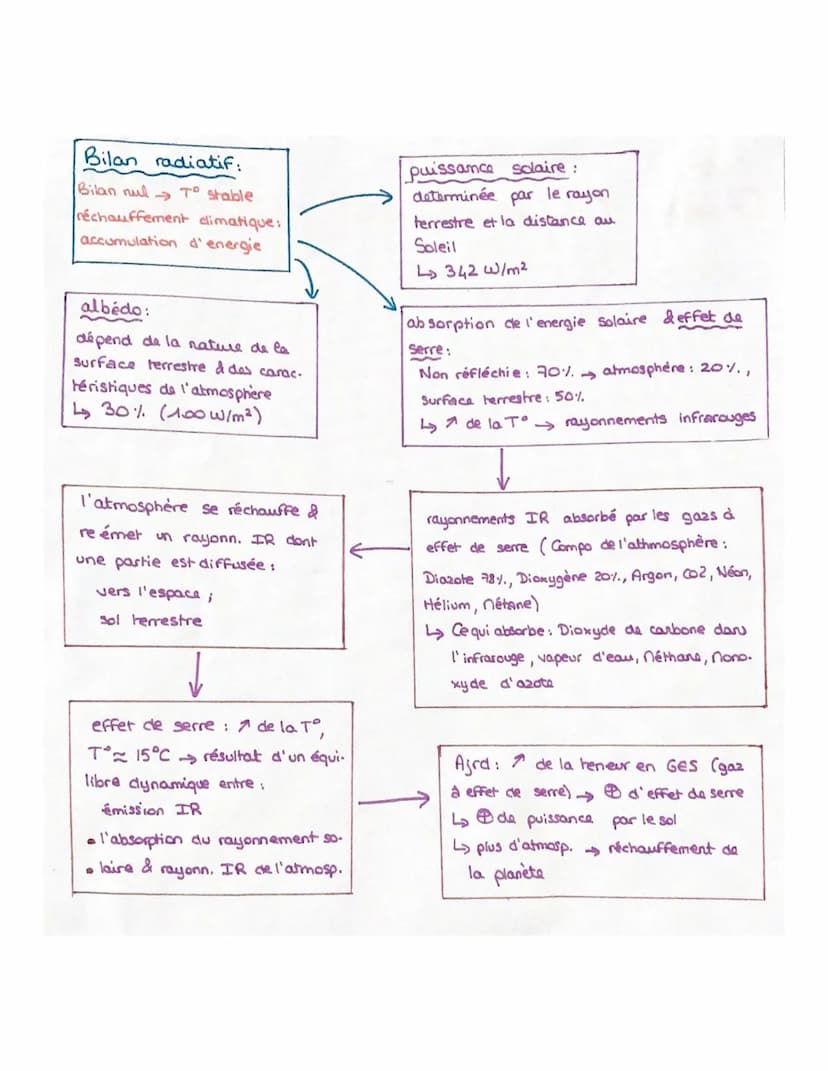 Bilan radiatif:
Bilan nul → T° stable
réchauffement climatique:
accumulation d'energie
puissance solaire :
determinée par le rayon
terrestre et la distance au
Soleil
↳ 342 W/m²
albédo:
dépend de la nature de la
surface terrestre & des carac-
téristiques de l'atmosphère
↳ 30% (100 W/m²)
absorption de l'energie solaire & effet de
serre:
Non réfléchie : 70% → atmosphère : 20%,
surface terrestre : 50%
↳ ↗ de la T° → rayonnements infrarouges
rayonnements IR absorbé par les gazs à
effet de serre (Compo de l'athmosphère :
Diazote 78%, Dioxygène 20%, Argon, CO2, Néon,
Hélium, Métane)
↳ Ce qui absorbe : Dioxyde de carbone dans
l'infrarouge, vapeur d'eau, Méthane, Mono-
xyde d'azote
l'atmosphère se réchauffe &
re émet un rayonn. IR dont
une partie est diffusée :
vers l'espace ;
sol terrestre
effet de serre : ↗ de la T°,
T° ≈ 15°C → résultat d'un équi-
libre dynamique entre :
émission IR
• l'absorption du rayonnement so-
• laire & rayonn. IR de l'atmosp.
Ajrd : ↗ de la teneur en GES (gaz
à effet de serre) → ⊕ d'effet de serre
↳ ⊕ de puissance par le sol
↳ plus d'atmosp. → réchauffement de
la planète